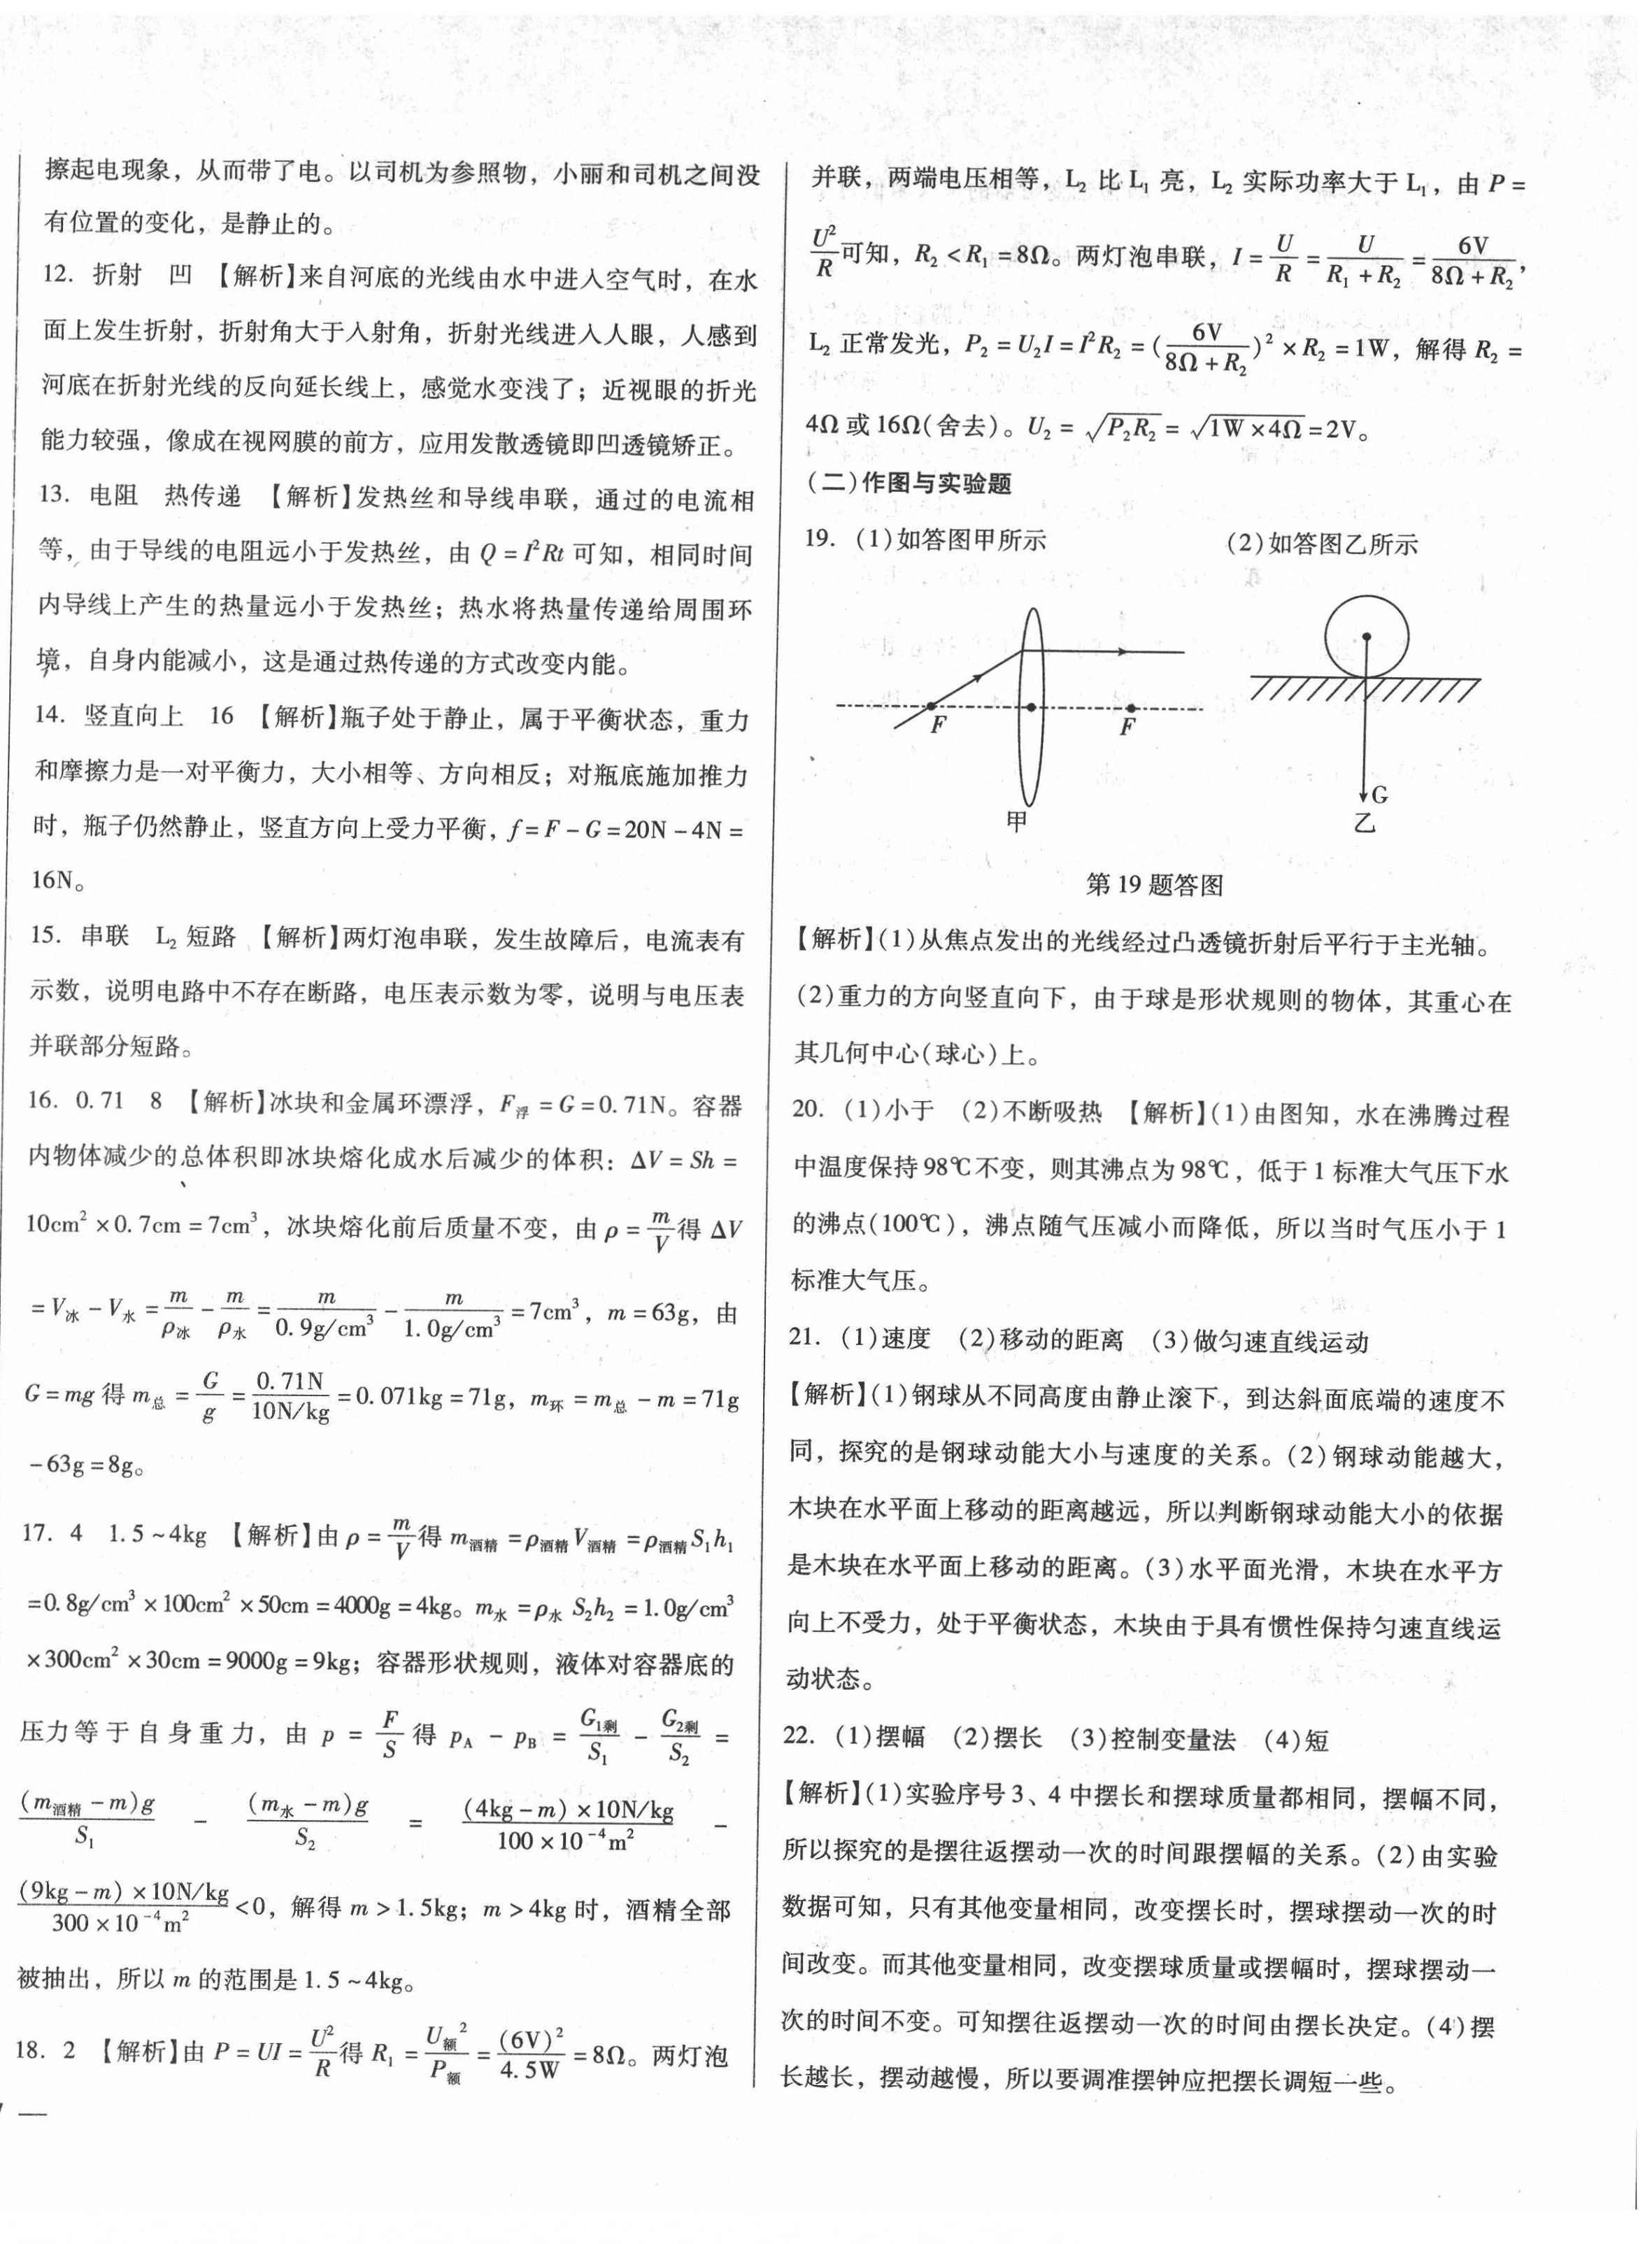 擦起电现象，从而带了电。以司机为参照物，小丽和司机之间没
有位置的变化，是静止的。
12. 折射　凹　【解析】来自河底的光线由水中进入空气时，在水
面上发生折射，折射角大于入射角，折射光线进入人眼，人感到
河底在折射光线的反向延长线上，感觉水变浅了；近视眼的折光
能力较强，像成在视网膜的前方，应用发散透镜即凹透镜矫正。
13. 电阻　热传递　【解析】发热丝和导线串联，通过的电流相
等，由于导线的电阻远小于发热丝，由 Q = I²Rt 可知，相同时间
内导线上产生的热量远小于发热丝；热水将热量传递给周围环
境，自身内能减小，这是通过热传递的方式改变内能。
14. 竖直向上　16　【解析】瓶子处于静止，属于平衡状态，重力
和摩擦力是一对平衡力，大小相等、方向相反；对瓶底施加推力
时，瓶子仍然静止，竖直方向上受力平衡，f = F - G = 20N - 4N =
16N。
15. 串联　L₂ 短路　【解析】两灯泡串联，发生故障后，电流表有
示数，说明电路中不存在断路，电压表示数为零，说明与电压表
并联部分短路。
16. 0.71　8　【解析】冰块和金属环漂浮，F浮 = G = 0.71N。容器
内物体减少的总体积即冰块熔化成水后减少的体积：ΔV = Sh =
10cm² × 0.7cm = 7cm³，冰块熔化前后质量不变，由 ρ = m/V 得 ΔV
= V冰 - V水 = m/ρ冰 - m/ρ水 = m/0.9g/cm³ - m/1.0g/cm³ = 7cm³，m = 63g，由
G = mg 得 m总 = G/g = 0.71N/10N/kg = 0.071kg = 71g，m环 = m总 - m = 71g
- 63g = 8g。
17. 4　1.5 ~ 4kg　【解析】由 ρ = m/V 得 m酒精 = ρ酒精 V酒精 = ρ酒精 S₁h₁
= 0.8g/cm³ × 100cm² × 50cm = 4000g = 4kg。m水 = ρ水 S₂h₂ = 1.0g/cm³
× 300cm² × 30cm = 9000g = 9kg；容器形状规则，液体对容器底的
压力等于自身重力，由 p = F/S 得 pA - pB = G1剩/S₁ - G2剩/S₂ =
(m酒精 - m)g/S₁ - (m水 - m)g/S₂ = (4kg - m) × 10N/kg / 100 × 10⁻⁴m² -
(9kg - m) × 10N/kg / 300 × 10⁻⁴m² < 0，解得 m > 1.5kg；m > 4kg 时，酒精全部
被抽出，所以 m 的范围是 1.5 ~ 4kg。
18. 2　【解析】由 P = UI = U²/R 得 R₁ = U额²/P额 = (6V)²/4.5W = 8Ω。两灯泡
并联，两端电压相等，L₂ 比 L₁ 亮，L₂ 实际功率大于 L₁，由 P =
U²/R 可知，R₂ < R₁ = 8Ω。两灯泡串联，I = U/R = U/(R₁ + R₂) = 6V/(8Ω + R₂)，
L₂ 正常发光，P₂ = U₂I = I²R₂ = (6V/(8Ω + R₂))² × R₂ = 1W，解得 R₂ =
4Ω 或 16Ω(舍去)。U₂ = √P₂R₂ = √1W × 4Ω = 2V。
(二)作图与实验题
19. (1)如答图甲所示　(2)如答图乙所示
F
F
G
甲
乙
第 19 题答图
【解析】(1)从焦点发出的光线经过凸透镜折射后平行于主光轴。
(2)重力的方向竖直向下，由于球是形状规则的物体，其重心在
其几何中心(球心)上。
20. (1)小于　(2)不断吸热　【解析】(1)由图知，水在沸腾过程
中温度保持 98℃ 不变，则其沸点为 98℃，低于 1 标准大气压下水
的沸点(100℃)，沸点随气压减小而降低，所以当时气压小于 1
标准大气压。
21. (1)速度　(2)移动的距离　(3)做匀速直线运动
【解析】(1)钢球从不同高度由静止滚下，到达斜面底端的速度不
同，探究的是钢球动能大小与速度的关系。(2)钢球动能越大，
木块在水平面上移动的距离越远，所以判断钢球动能大小的依据
是木块在水平面上移动的距离。(3)水平面光滑，木块在水平方
向上不受力，处于平衡状态，木块由于具有惯性保持匀速直线运
动状态。
22. (1)摆幅　(2)摆长　(3)控制变量法　(4)短
【解析】(1)实验序号 3、4 中摆长和摆球质量都相同，摆幅不同，
所以探究的是摆往返摆动一次的时间跟摆幅的关系。(2)由实验
数据可知，只有其他变量相同，改变摆长时，摆球摆动一次的时
间改变。而其他变量相同，改变摆球质量或摆幅时，摆球摆动一
次的时间不变。可知摆往返摆动一次的时间由摆长决定。(4)摆
长越长，摆动越慢，所以要调准摆钟应把摆长调短一些。